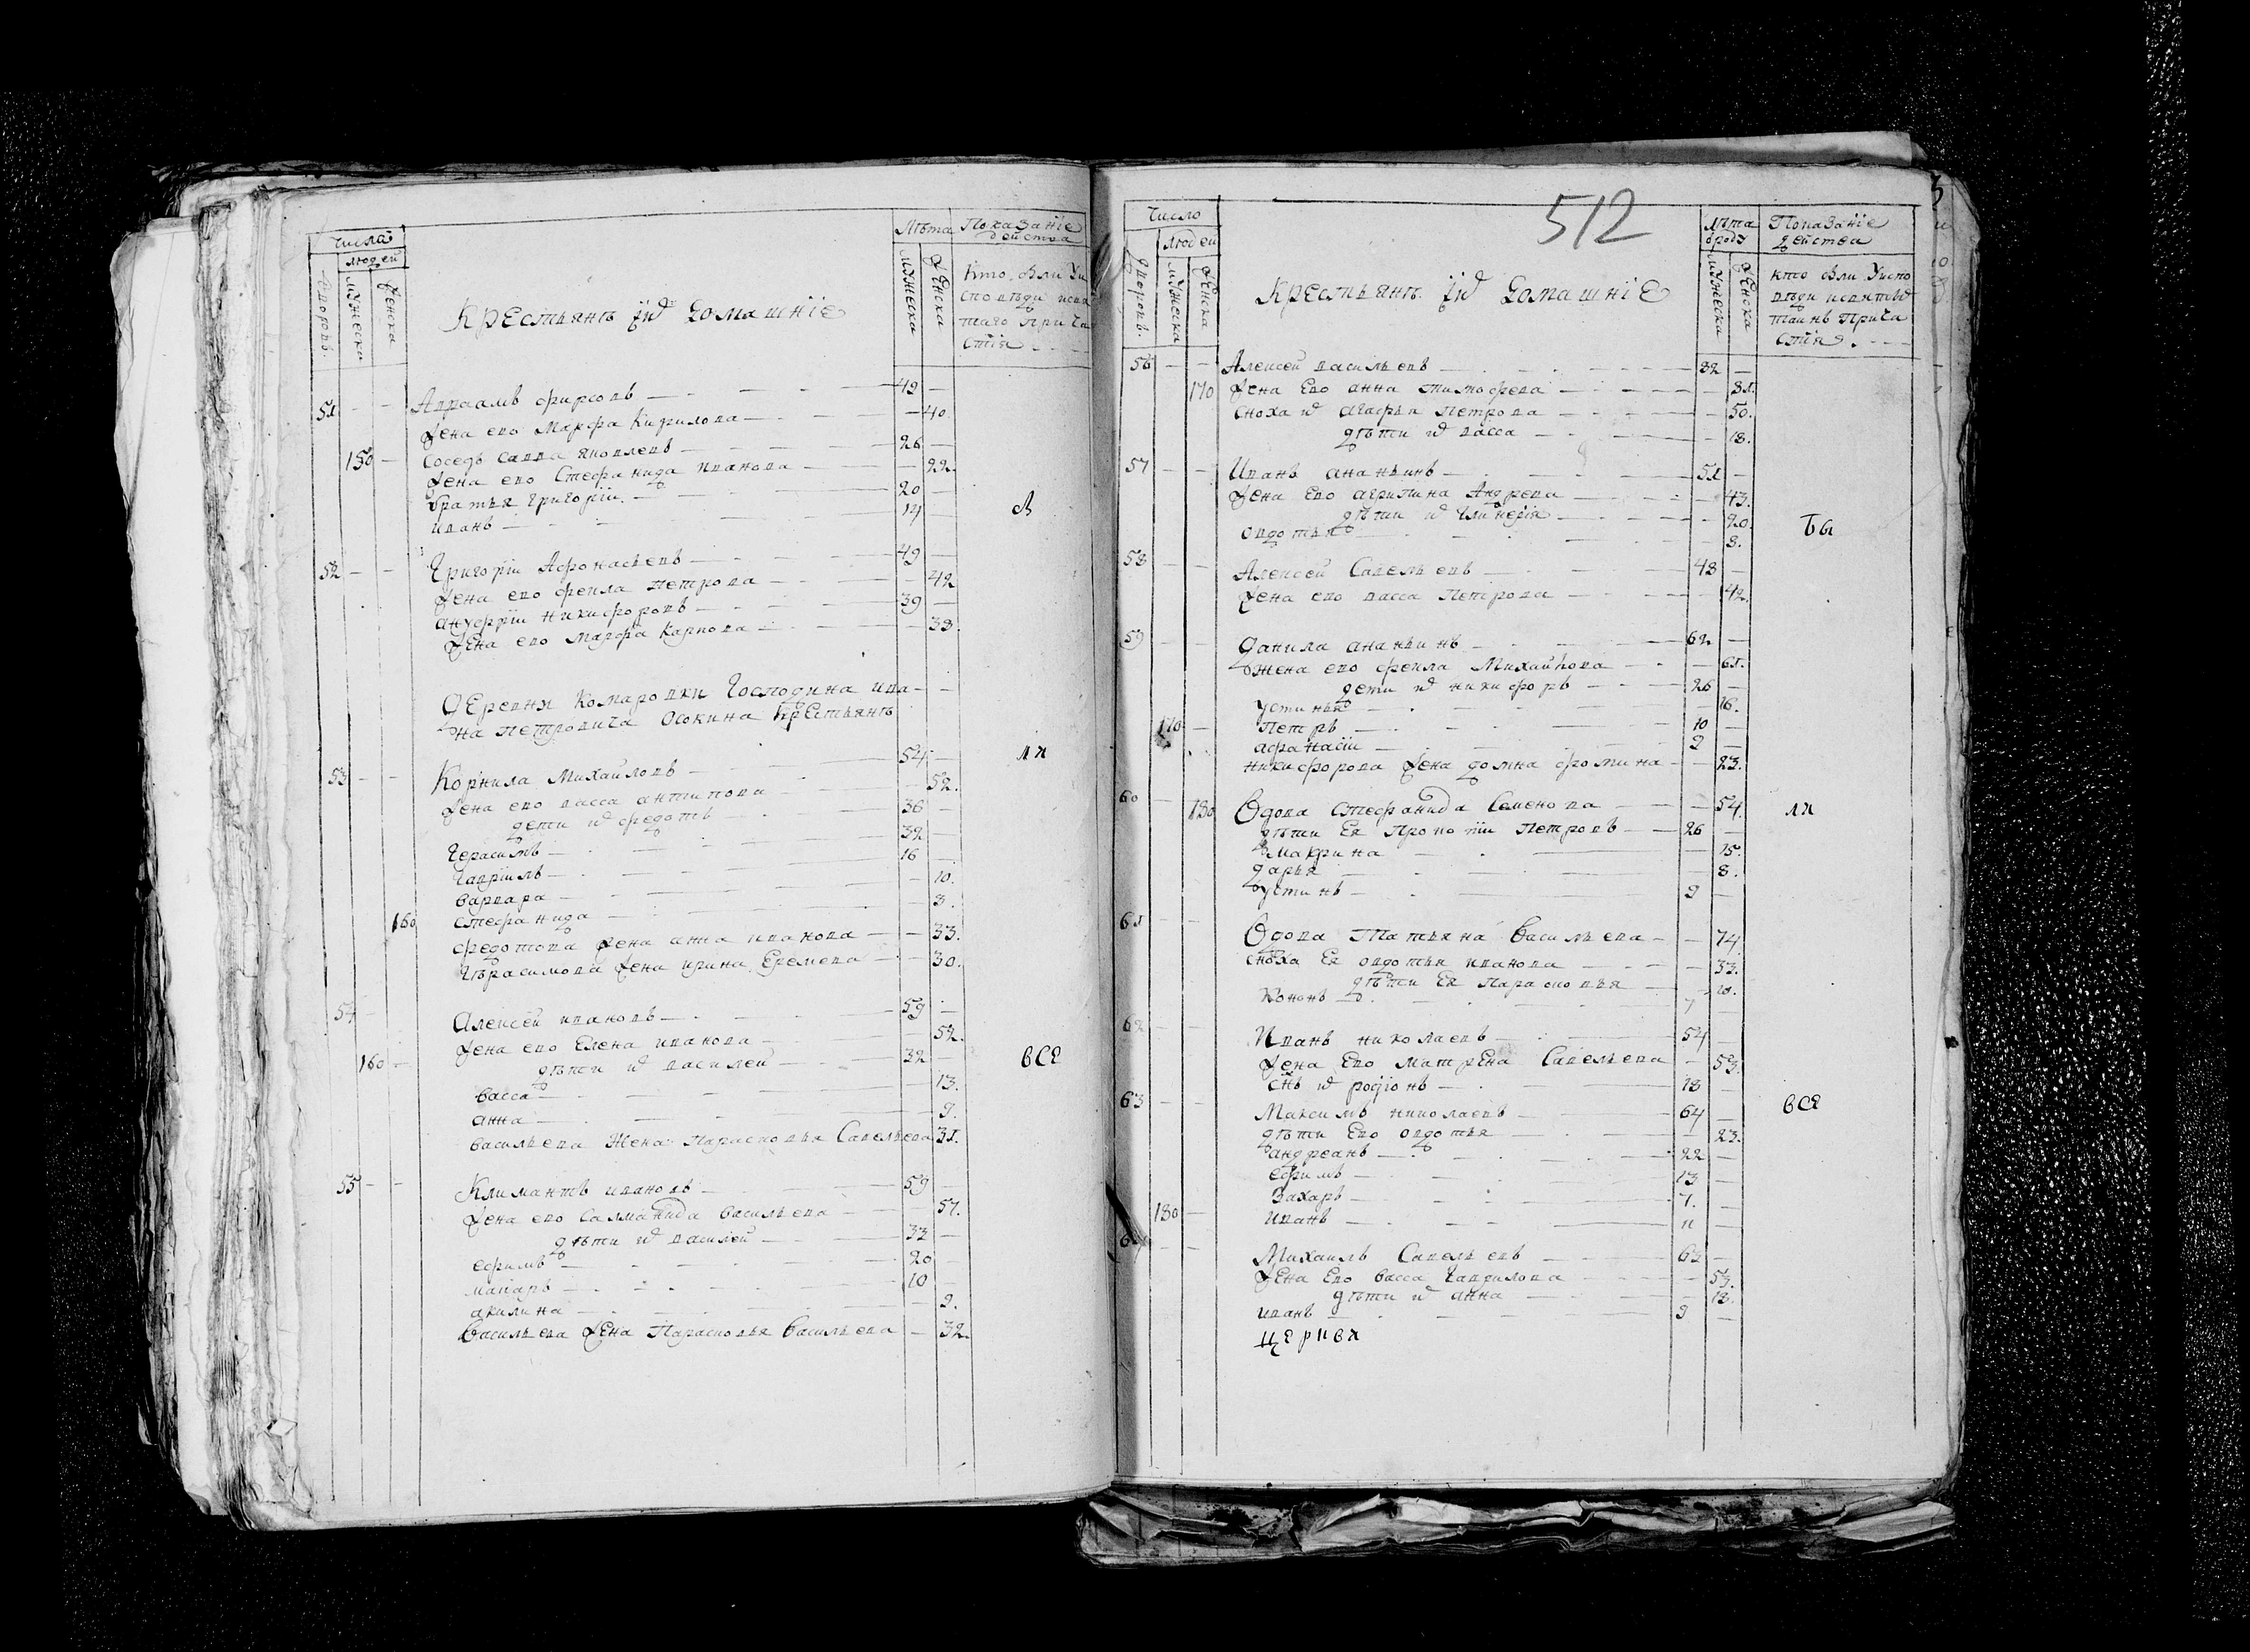 Числа
людей
Дворовъ.
мужеска
женска
Крестьянъ ихъ домашніе
Лѣта
мужеска
женска
Показаніе
действа
кто, были Уи
сповѣди исвя
таго Прича
стія
51 Авраамъ фирсовъ 49
жена ево Марфа Кирилова 40.
150 соседъ савва яковлевъ 26
жена ево Стефанида иванова 22.
братья григоріи 20
иванъ 14
52 Григоріи Афонасьевъ 49
жена ево фекла петрова 42
ануфріи никифоровъ 39
жена ево марфа карпова 38.
Деревни Комаровки Господина ива
на петровича Осокина крестьянъ
53 Корнила Михайловъ 54
жена ево васса антипова 52.
дети их федотъ 36
герасимъ 32
гавріилъ 16
варвара 10.
160 стефанида 3.
федотова жена анна иванова 33.
герасимова жена ирина Еремеева 30.
54 Алексей ивановъ 59
жена ево Елена иванова 52.
160 дѣти их василей 32
васса 13.
анна 9.
васильева Жена Парасковья Савельева 31.
55 Климантъ ивановъ 59
жена ево Салманида васильева 57.
дѣти их василей 33
ефимъ 20
макаръ 10
акилина 9.
Васильева жена Парасковья Васильева 32.
ля
все
512
Число
людей
дворовъ.
мужеска
женска
Крестьянъ. ихъ домашніе
Лѣта
ѿроду
мужеска
женска
Показаніе
действа
кто были Уиспо
вѣди исвятых
таинъ Прича
стія.
56 Алексей васильевъ 82
170 жена Ево анна тимофеева 81.
сноха их агафья петрова 50.
дѣти их васса 18.
57 Иванъ ананьинъ 51
жена Ево агрипина Андреева 43.
дѣти их гликерія 20.
овдотья 8.
58 Алексей Савельевъ 48
жена ево васса Петрова 42.
59 Данила ананьинъ 62
жена ево фекла Михайлова 61.
дети их никифоръ 26
устинья 16.
170 Петръ 10
афанасіи 2
никифорова жена домна фомина 23.
60 180 Вдова Стефанида Семенова 54.
дѣти Ея Прокопіи Петровъ 26
Макрина 15.
дарья 8.
устинъ 9
61 Вдова Татьяна Васильева 74.
сноха Ея овдотья иванова 33.
дѣти Ея Парасковья 10.
Кононъ 7
62 Иванъ николаевъ 54
жена Ево матрена Савельева 53.
снъ их родіонъ 18
63 Максимъ николаевъ 64
дѣти Ево овдотья 23.
андреанъ 22
ефимъ 13
Захаръ 7.
180 Иванъ 11
64 Михаилъ Савельевъ 63
жена Ево васса гаврилова 53.
дѣти их анна 12.
иванъ 9
церквя
бы
ля
все